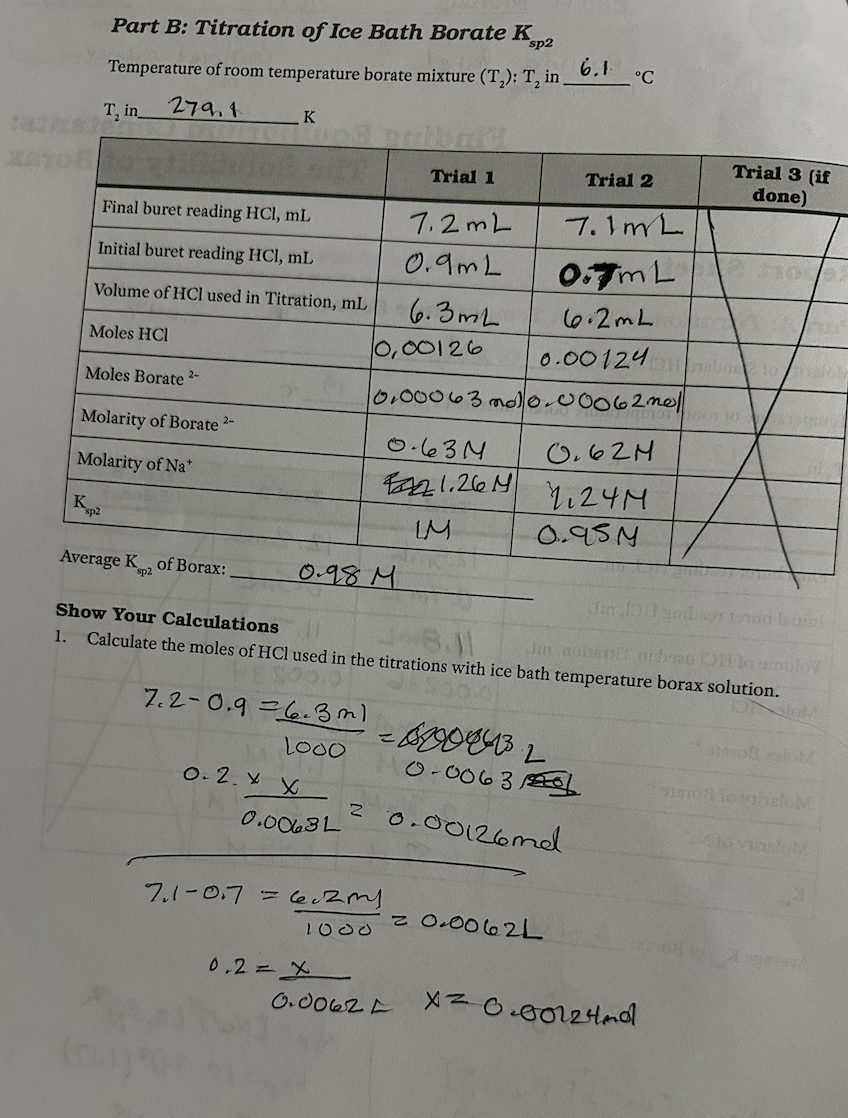 Part B: Titration of Ice Bath Borate Ksp2
Temperature of room temperature borate mixture (T2): T2 in 6.1 °C
T2 in 279.1 K
Trial 1 Trial 2 Trial 3 (if done)
Final buret reading HCl, mL 7.2 mL 7.1 mL
Initial buret reading HCl, mL 0.9 mL 0.7 mL
Volume of HCl used in Titration, mL 6.3 mL 6.2 mL
Moles HCl 0.00126 0.00124
Moles Borate 2- 0.00063 mol 0.00062 mol
Molarity of Borate 2- 0.63 M 0.62 M
Molarity of Na+ 1.26 M 1.24 M
Ksp2 1M 0.95 M
Average Ksp2 of Borax: 0.98 M
Show Your Calculations
1. Calculate the moles of HCl used in the titrations with ice bath temperature borax solution.
7.2 - 0.9 = 6.3 ml
1000
= L
0.0063
0.2 x x
0.0063L = 0.00126 mol
7.1 - 0.7 = 6.2 ml
1000 = 0.0062L
0.2 = x
0.0062 L x = 0.00124 mol